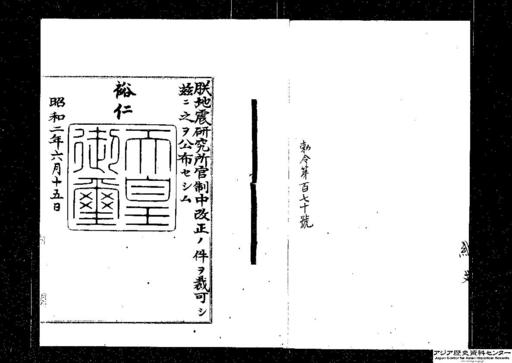 勅令第百七十號
朕地震硏究所官制中改正ノ件ヲ裁可シ
茲ニ之ヲ公布セシム
裕仁
天皇御璽
昭和二年六月十五日
アジア歴史資料センター
Japan Center for Asian Historical Records